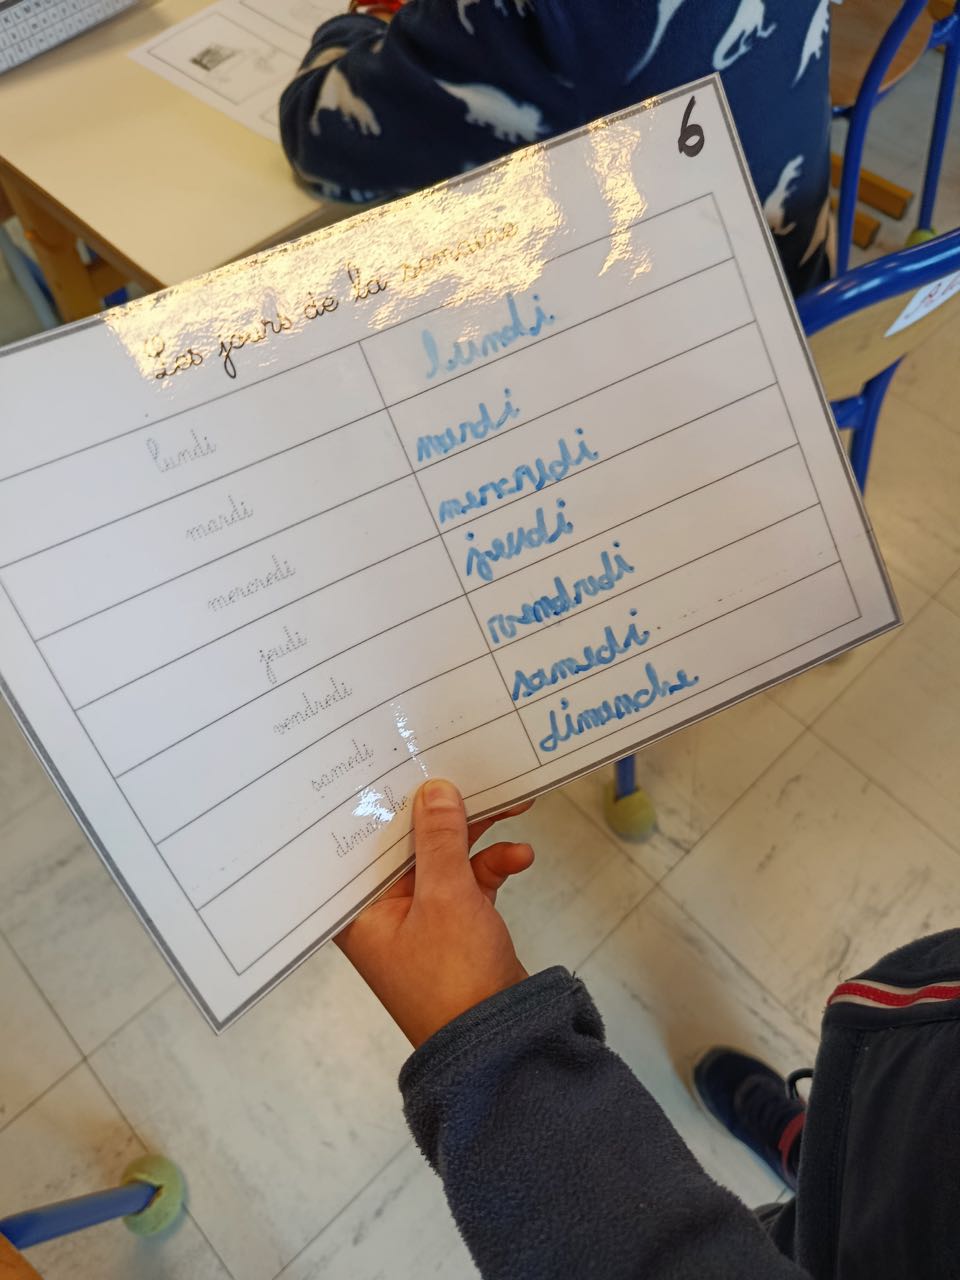 6
Les jours de la semaine
lundi lundi
mardi mardi
mercredi mercredi
jeudi jeudi
vendredi vendredi
samedi samedi
dimanche dimanche